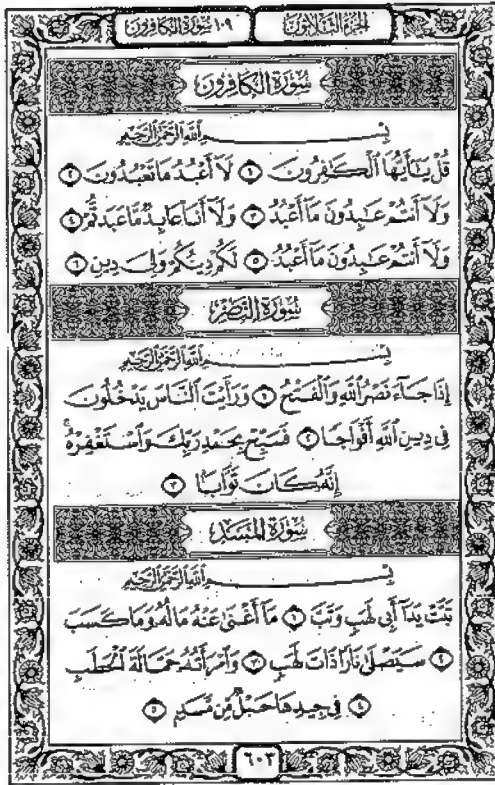 الجزء الثلاثون
١٠٩ سورة الكافرون
سُورَةُ الكَافِرُونَ
بِسْمِ اللَّهِ الرَّحْمَٰنِ الرَّحِيمِ
قُلْ يَٰٓأَيُّهَا ٱلْكَٰفِرُونَ ١ لَآ أَعْبُدُ مَا تَعْبُدُونَ ٢
وَلَآ أَنتُمْ عَٰبِدُونَ مَآ أَعْبُدُ ٣ وَلَآ أَنَا۠ عَابِدٌ مَّا عَبَدتُّمْ ٤
وَلَآ أَنتُمْ عَٰبِدُونَ مَآ أَعْبُدُ ٥ لَكُمْ دِينُكُمْ وَلِىَ دِينِ ٦
سُورَةُ النَّصْرِ
بِسْمِ اللَّهِ الرَّحْمَٰنِ الرَّحِيمِ
إِذَا جَآءَ نَصْرُ ٱللَّهِ وَٱلْفَتْحُ ١ وَرَأَيْتَ ٱلنَّاسَ يَدْخُلُونَ
فِى دِينِ ٱللَّهِ أَفْوَاجًا ٢ فَسَبِّحْ بِحَمْدِ رَبِّكَ وَٱسْتَغْفِرْهُ ۚ
إِنَّهُۥ كَانَ تَوَّابًۢا ٣
سُورَةُ المَسَدِ
بِسْمِ اللَّهِ الرَّحْمَٰنِ الرَّحِيمِ
تَبَّتْ يَدَآ أَبِى لَهَبٍ وَتَبَّ ١ مَآ أَغْنَىٰ عَنْهُ مَالُهُۥ وَمَا كَسَبَ
٢ سَيَصْلَىٰ نَارًا ذَاتَ لَهَبٍ ٣ وَٱمْرَأَتُهُۥ حَمَّالَةَ ٱلْحَطَبِ
٤ فِى جِيدِهَا حَبْلٌ مِّن مَّسَدٍۭ ٥
٦٠٣